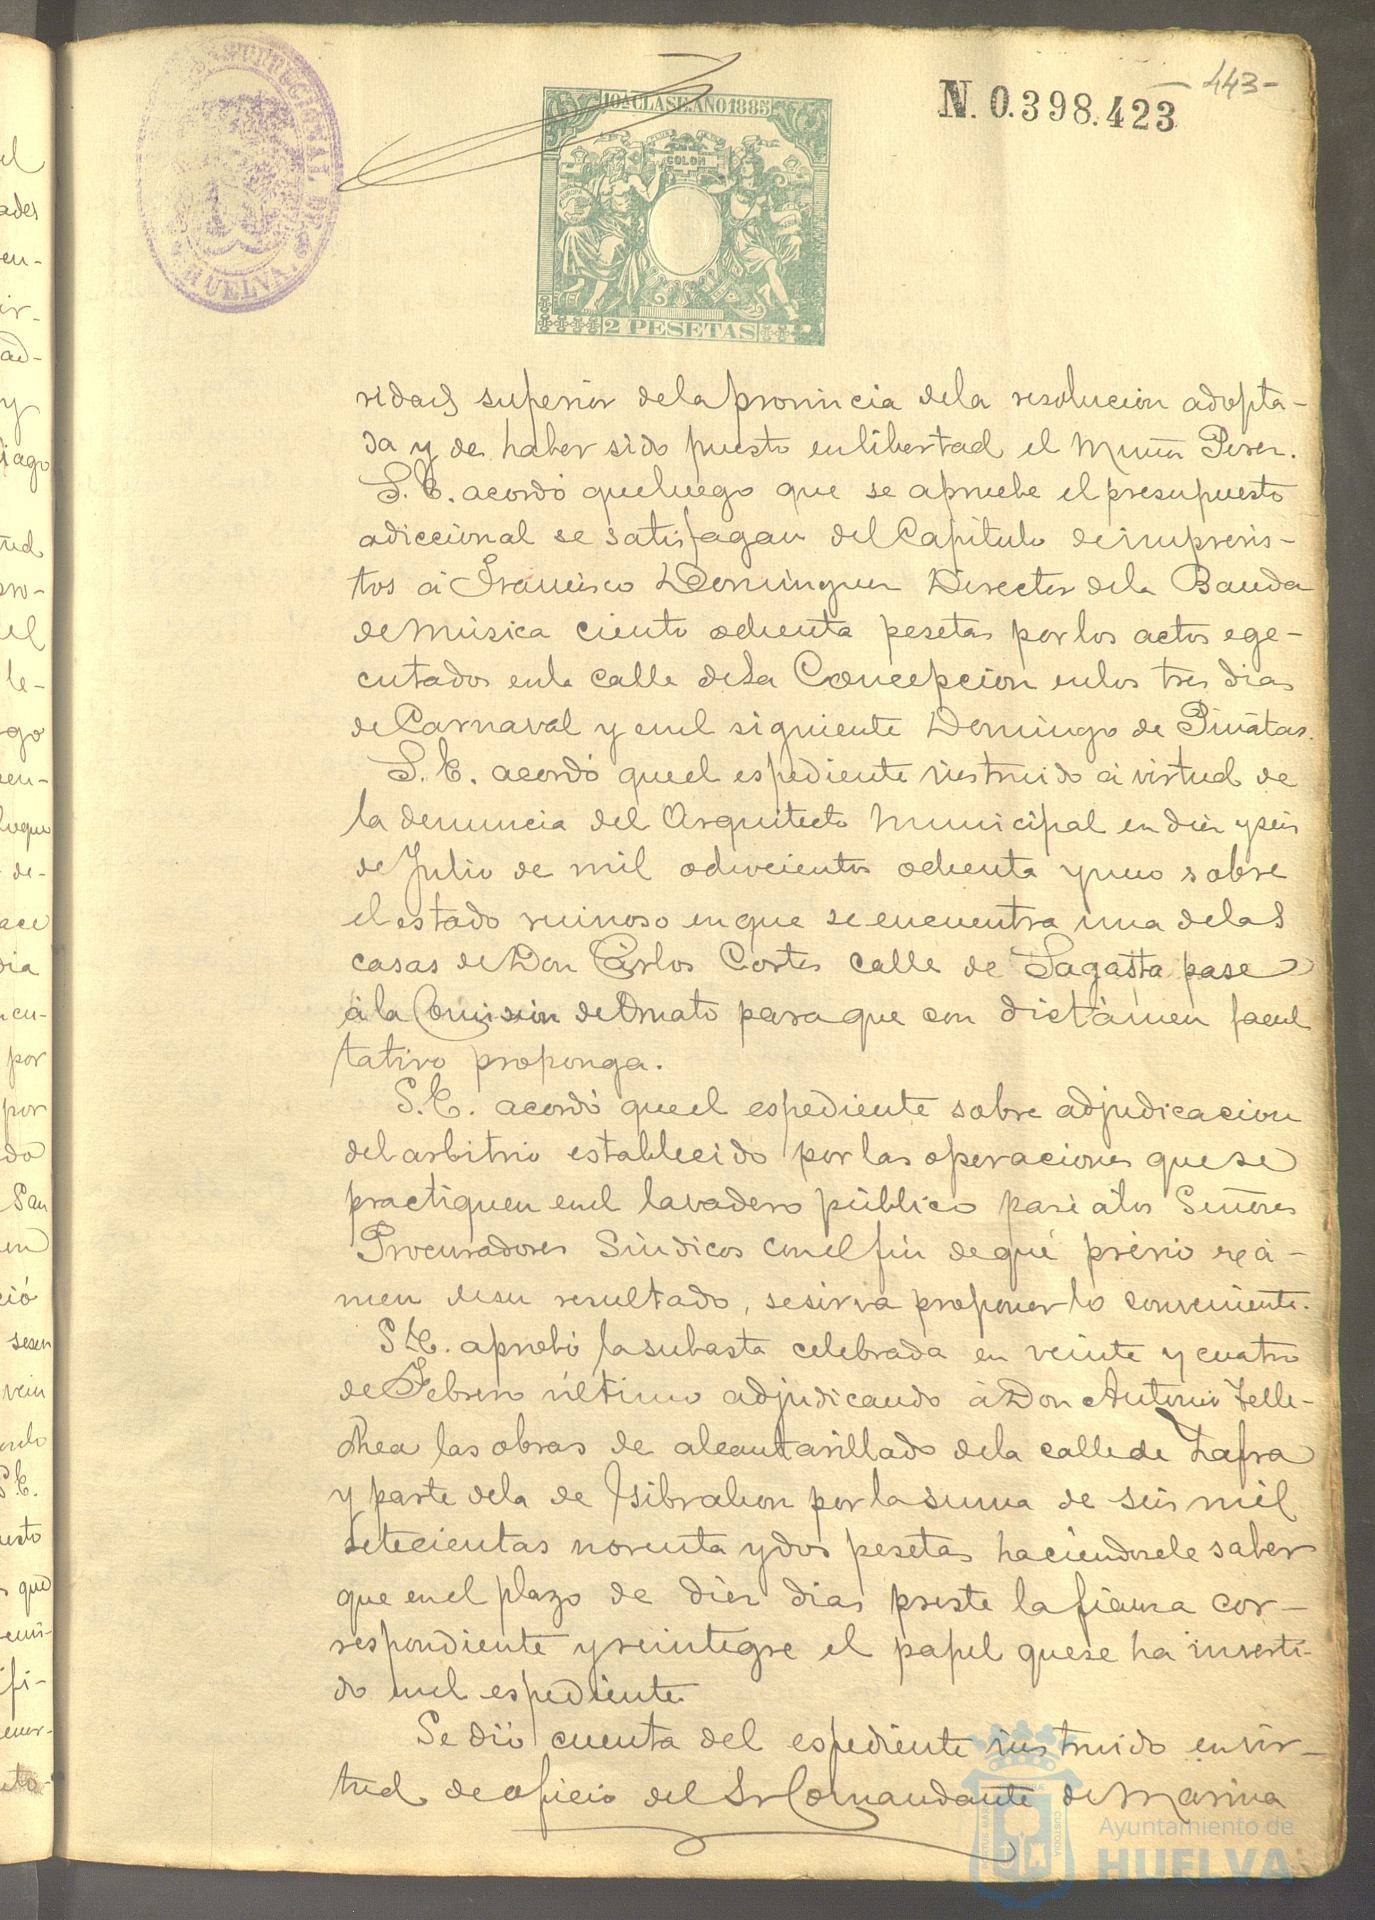 443-
N. 0.398.423
10ª CLASE. AÑO 1885
COLON
2 PESETAS
HUELVA
ridad superior dela provincia dela resolucion adopta-
da y de haber sido puesto en libertad el Muñoz Perez.
S. E. acordó que luego que se apruebe el presupuesto
adiccional se satisfagan del Capitulo de imprevis-
tos á Francisco Dominguez Director dela Banda
de Música ciento ochenta pesetas por los actos ege-
cutados en la calle de la Concepcion en los tres dias
de Carnaval y en el siguiente Domingo de Piñatas.
S. E. acordó que el espediente instruido á virtud de
la denuncia del Arquitecto Municipal en diez y seis
de Julio de mil ochocientos ochenta y uno sobre
el estado ruinoso en que se encuentra una de las
casas de Don Cárlos Cortes calle de Sagasta pase
á la Comision de Ornato para que con dictámen facul
tativo proponga.
S. E. acordó que el espediente sobre adjudicacion
del arbitrio establecido por las operaciones que se
practiquen en el lavadero público pase á los Señores
Procuradores Sindicos con el fin de que prévio exá-
men de su resultado, se sirva proponer lo conveniente.
S. E. aprobó la subasta celebrada en veinte y cuatro
de Febrero último adjudicando á Don Antonio Telle-
chea las obras de alcantarillado de la calle de Zafra
y parte dela de por la suma de seis mil
setecientas noventa y dos pesetas haciendosele saber
que en el plazo de diez dias preste la fianza cor-
respondiente y reintegre el papel que se ha inverti-
do en el espediente.
Se dió cuenta del espediente instruido en vir-
tud de oficio del Sr Comandante de Marina
Ayuntamiento de
HUELVA